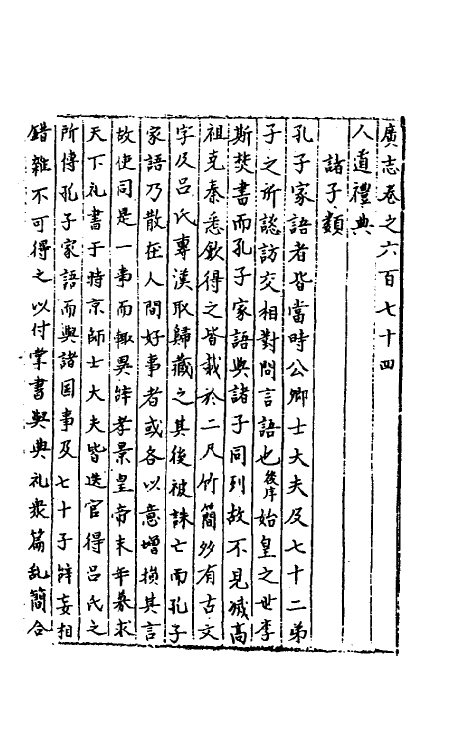 廣志卷之六百七十四
人道禮典
諸子類
孔子家語者皆當時公卿士大夫及七十二弟
子之所諮訪交相對問言語也後序始皇之世李
斯焚書而孔子家語與諸子同列故不見滅高
祖克秦悉歛得之皆載於二尺竹簡多有古文
字及呂氏專漢取歸藏之其後被誅亡而孔子
家語乃散在人間好事者或各以意增損其言
故使同是一事而輒異辞孝景皇帝末年募求
天下礼書于時京師士大夫皆送官得呂氏之
所傳孔子家語而與諸国事及七十子辞妄相
錯雜不可得之以付掌書與典礼衆篇乱簡合